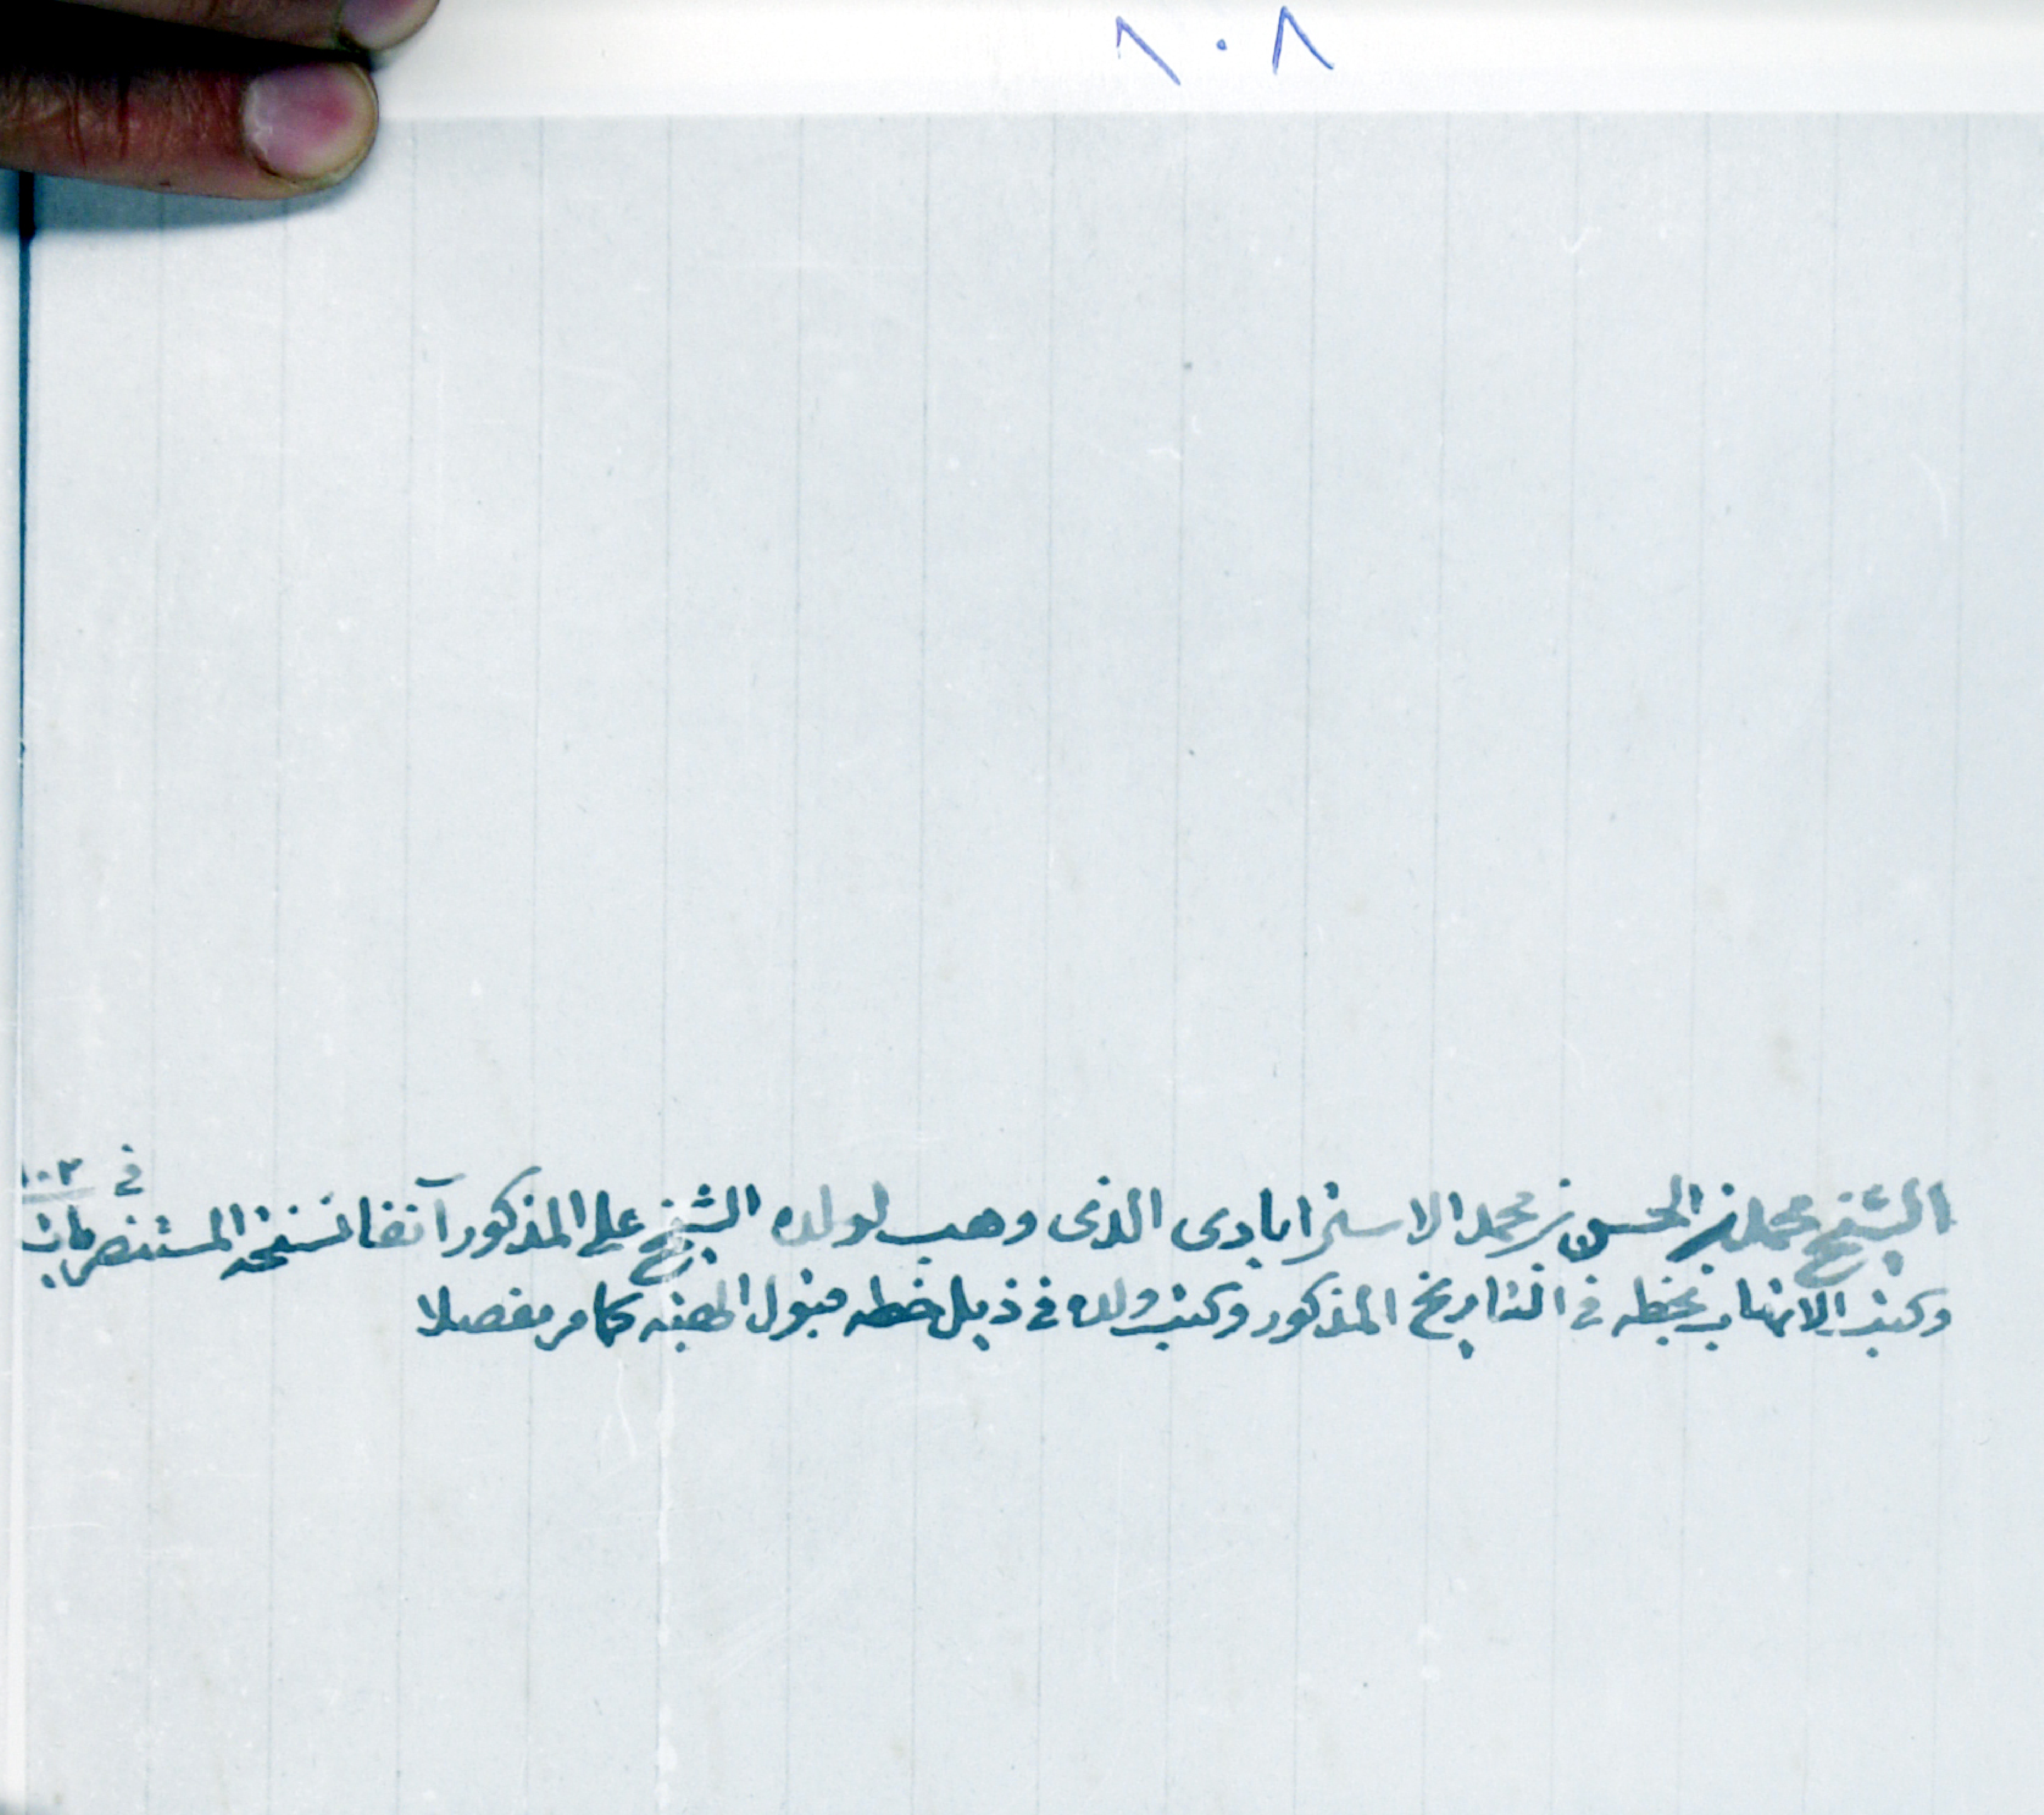 ٨٠٨
الشيخ محمد بن الحسن بن محمد الاسترابادى الذى وهب لولده الشيخ على المذكور آنفا نسخة المستنصريات فى
وكتب الاتهاب بخطه فى التاريخ المذكور وكتب ولده فى ذيل خطه قبول الهبة كما مر مفصلا